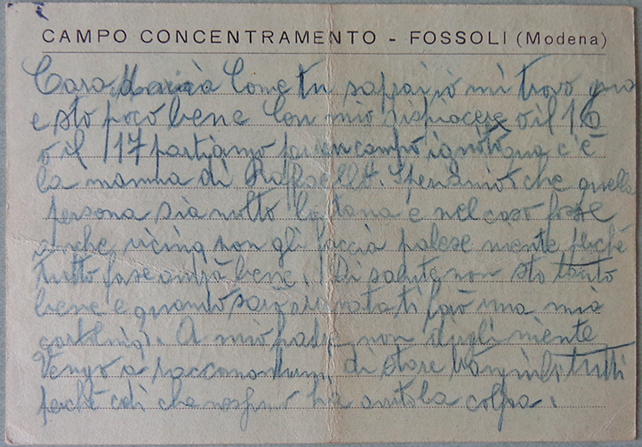 CAMPO CONCENTRAMENTO - FOSSOLI (Modena)
Cara Come tu saprai io mi trovo qua
e sto poco bene Con mio dispiacere o il 16
o il 17 partiamo per un campo ignoto qua c'è
la mamma di Raffaello. Speriamo che quella
persona sia molto lontana e nel caso fosse
anche vicina non gli faccia palese niente perché
tutto fase andrà bene. Di salute non sto tanto
bene e quando sarò ti farò una mia
cartolina. A mio padre non dirgli niente
Vengo a di stare tranquilli tutti
perché così che nessuno ha avuto la colpa.